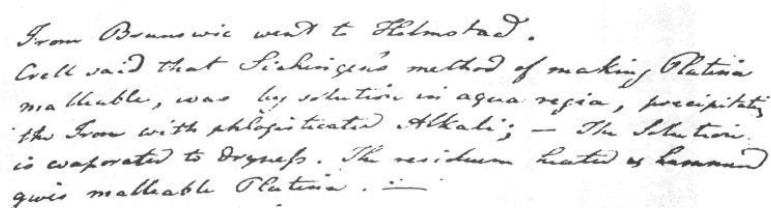 From Brunswic went to Helmstad.
Crell said that Sickingen's method of making Platina
malleable, was by solution in aqua regia, precipitating
the Iron with phlogisticated Alkali; — The Solution
is evaporated to Dryness. The residuum heated & hammered
gives malleable Platina. —